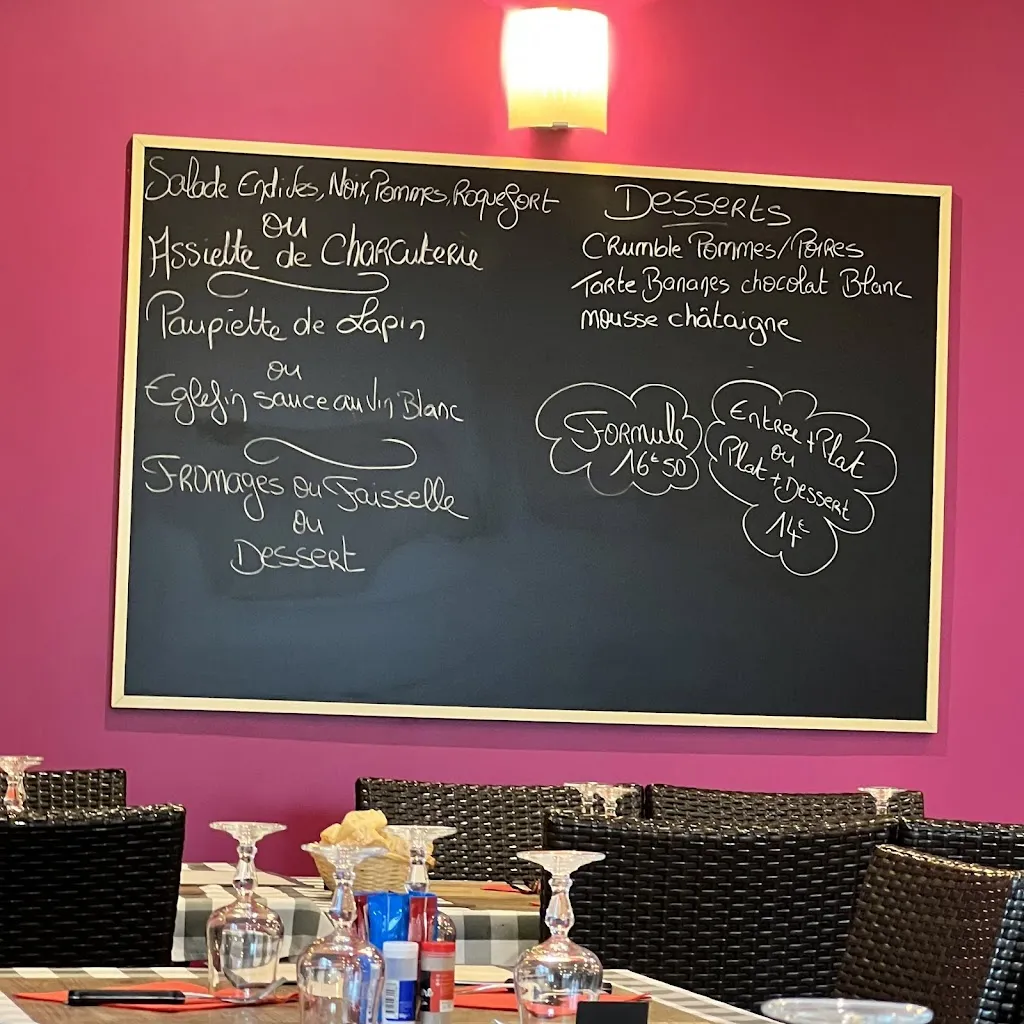 Salade Endives, Noix, Pommes, Roquefort
ou
Assiette de Charcuterie
Paupiette de Lapin
ou
Eglefin sauce au vin Blanc
Fromages ou Faisselle
ou
Dessert
Desserts
Crumble Pommes/Poires
Tarte Bananes chocolat Blanc
mousse châtaigne
Formule
16€50
Entree + Plat
ou
Plat + Dessert
14€